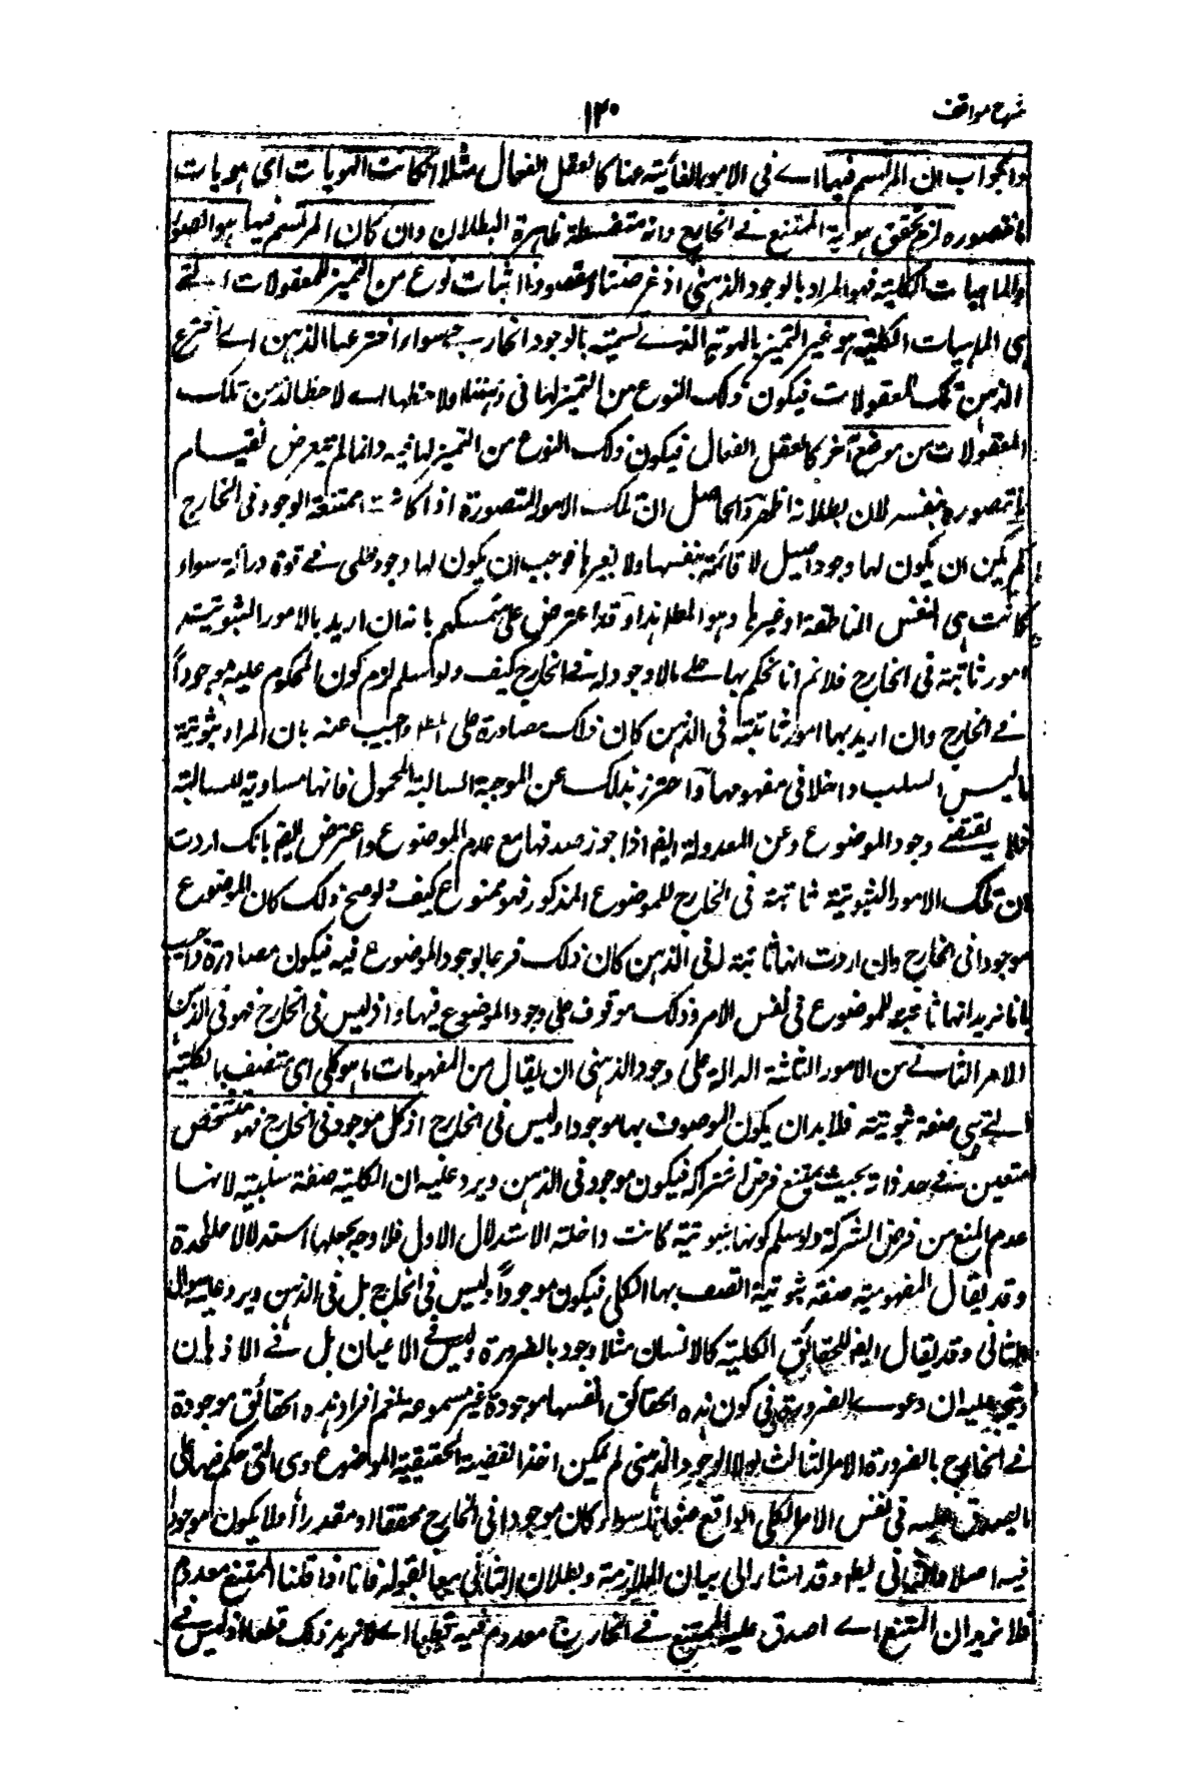 شرح مواقف
۱۲۰
والجواب ان المرتسم فيها اے فى الامور الغائبة عنا كالعقل الفعال مثلا ان كانت الهويات اى هويات
ما نتصوره لزم تحقق هوية الممتنع فے الخارج وانه سفسطة ظاهرة البطلان وان كان المرتسم فيها هو الصور
والماهيات الكلية فهو المراد بالوجود الذهنى اذ غرضنا ومقصودنا اثبات نوع من التميز للمعقولات التے
هى الماهيات الكلية هو غير التميز بالهوية الذے نسميه بالوجود الخارجے سواء اخترعها الذهن اے اخترع
الذهن تلك المعقولات فيكون ذلك النوع من التميز لها فى ذهننا او لاحظها اے لاحظ الذهن تلك
المعقولات من موضع آخر كالعقل الفعال فيكون ذلك النوع من التميز لها فيه وانما لم يتعرض لقيام
ما نتصوره بنفسه لان بطلانه اظهر والحاصل ان تلك الامور المتصورة اذا كانت ممتنعة الوجود فى الخارج
لم يكن ان يكون لها وجود اصيل لا قائمة بنفسها ولا بغيرها فوجب ان يكون لها وجود ظلى فے قوة دراكة سواء
كانت هى النفس الناطقة او غيرها وهو المط هذا وقد اعترض على تمسكهم بانه ان اريد بالامور الثبوتية
امور ثابتة فى الخارج فلا نم انا نحكم بها على ما لا وجود له فے الخارج كيف ولو سلم لزم كون المحكوم عليه موجوداً
فے الخارج وان اريد بها امور ثابتة فى الذهن كان ذلك مصادرة على المط واجيب عنه بان المراد بثبوتية
ما ليس السلب داخلا فى مفهومها واحترز بذلك عن الموجبة السالبة المحمول فانها مساوية للسالبة
فلا يقتضے وجود الموضوع وعن المعدولة ايضا اذا جوز صدقها مع عدم الموضوع واعترض ايضا بانك اردت
ان تلك الامور الثبوتية ثابتة فى الخارج للموضوع المذكور فهو ممنوع كيف ولو صح ذلك كان الموضوع
موجودا فى الخارج وان اردت انها ثابتة له فى الذهن كان ذلك فرعا لوجود الموضوع فيه فيكون مصادرة واجيب
بانا نريد انها ثابتة للموضوع فى نفس الامر وذلك موقوف على وجود الموضوع فيها واذ ليس فى الخارج فهو فى الذهن
الامر الثانے من الامور الثلثة الدالة على وجود الذهنى ان يقال من المفهومات ما هو كلى اى متصف بالكلية
التے هى صفة ثبوتية فلا بد ان يكون الموصوف بها موجودا وليس فى الخارج اذ كل موجود فى الخارج فهو متشخص
متعين فے حد ذاته بحيث يمتنع فرض اشتراكه فيكون موجود فى الذهن ويرد عليه ان الكلية صفة سلبية لانها
عدم المنع من فرض الشركة ولو سلم كونها ثبوتية كانت داخلة الاستدلال الاول فلا وجه لجعلها استدلالا على حدة
وقد يقال المفهومية صفة ثبوتية اتصف بها الكلى فيكون موجوداً وليس فى الخارج بل فى الذهن ويرد عليه سوال
الثانى وقد يقال ايضا للحقائق الكلية كالانسان مثلا وجود بالضرورة وليس فے الاعيان بل فے الاذهان
ويتجه عليه ان دعوے الضرورة فى كون هذه الحقائق انفسها موجودة غير مسموعة نعم افراد هذه الحقائق موجودة
فے الخارج بالضرورة الامر الثالث لولا الوجود الذهنى لم يمكن اخذ القضية الحقيقية الموضوع وهى التى حكم فيها على
ما يصدق عليه فى نفس الامر الكلى الواقع عنوانا سواء كان موجودا فى الخارج محققا او مقدراً او لا يكون موجودا
فيه اصلا والتالى بط وقد اشار الى بيان الملازمة وبطلان التالى معا بقوله فانا اذا قلنا الممتنع معدوم
فلا نريد ان الممتنع اے ما صدق عليه الممتنع فے الخارج معدوم فيه قطعا اے لا نريد ذلك قطعا اذ ليس فے